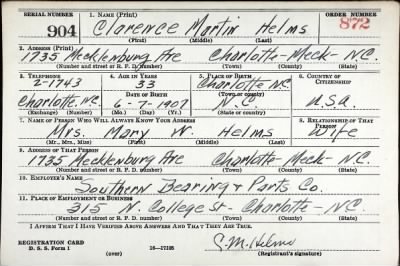 SERIAL NUMBER 1. NAME (Print) ORDER NUMBER
904 Clarence Martin Helms 872
(First) (Middle) (Last)
2. ADDRESS (Print)
1735 Mecklenburg Ave Charlotte-Meck-N.C.
(Number and street or R. F. D. number) (Town) (County) (State)
3. TELEPHONE 4. AGE IN YEARS 5. PLACE OF BIRTH 6. COUNTRY OF CITIZENSHIP
2-1743 33 Charlotte, N.C.
(Town or county)
Charlotte, N.C. 6-7-1907 N.C. U.S.A.
(Exchange) (Number) (Mo.) (Day) (Yr.) (State or country)
7. NAME OF PERSON WHO WILL ALWAYS KNOW YOUR ADDRESS 8. RELATIONSHIP OF THAT PERSON
Mrs. Mary W. Helms Wife
(Mr., Mrs., Miss) (First) (Middle) (Last)
9. ADDRESS OF THAT PERSON
1735 Mecklenburg Ave Charlotte-Meck-N.C.
(Number and street or R. F. D. number) (Town) (County) (State)
10. EMPLOYER'S NAME
Southern Bearing & Parts Co.
11. PLACE OF EMPLOYMENT OR BUSINESS
315 N. College St- Charlotte-N.C.
(Number and street or R. F. D. number) (Town) (County) (State)
I AFFIRM THAT I HAVE VERIFIED ABOVE ANSWERS AND THAT THEY ARE TRUE.
REGISTRATION CARD C.M. Helms
D. S. S. Form 1 (over) 16-17105 (Registrant's signature)